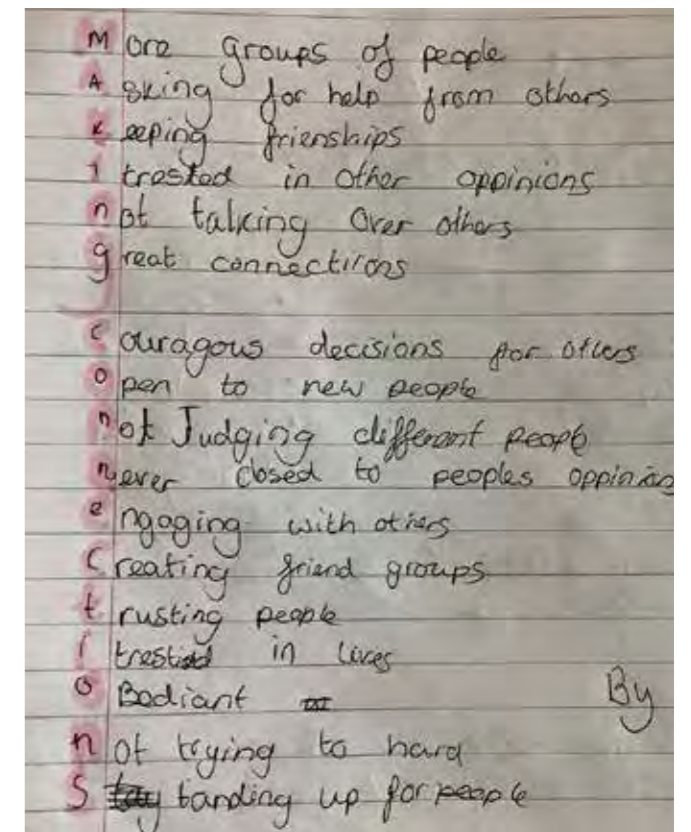 More groups of people
Asking for help from others
keeping frienships
itrested in other oppinions
not talking Over others
great connections
Couragous decisions for others
open to new people
not Judging different people
never closed to peoples oppinions
engaging with others
Creating friend groups
trusting people
itrested in lives
oBediant
By
not trying to hard
Standing up for people